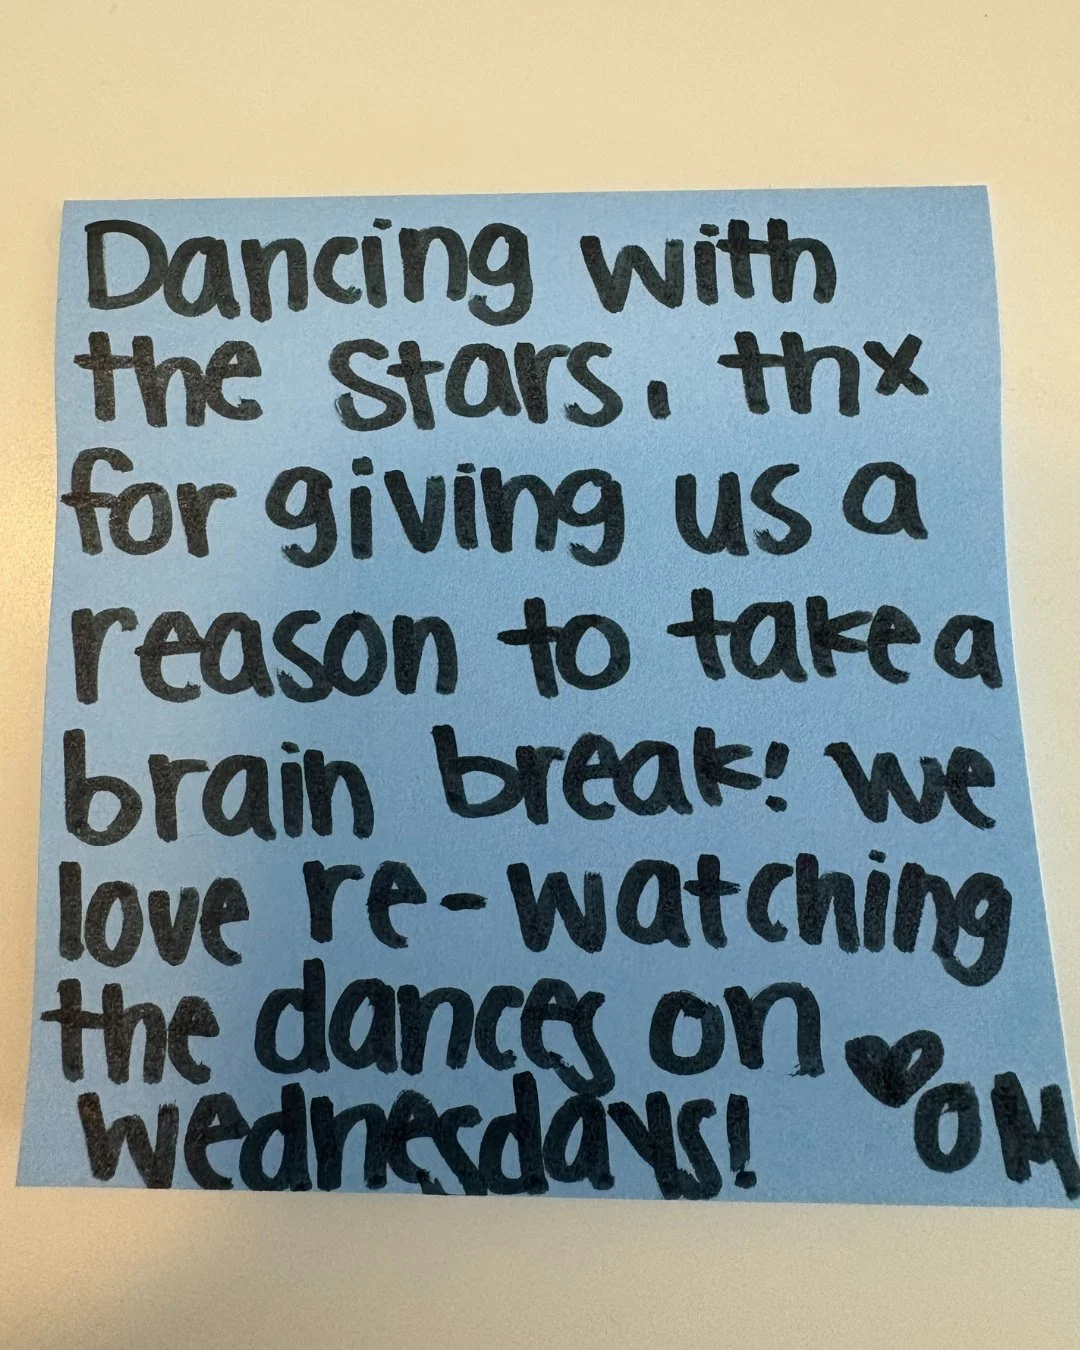 Dancing with
the stars. thx
for giving us a
reason to take a
brain break! we
love re-watching
the dances on
wednesdays! ♥ OM